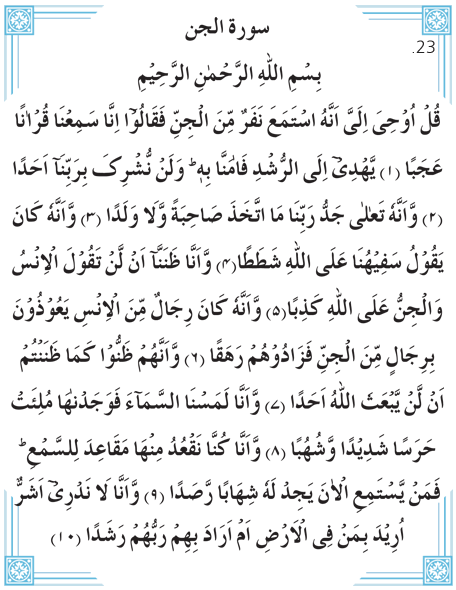 سورة الجن
23.
بِسْمِ اللّٰهِ الرَّحْمٰنِ الرَّحِيْمِ
قُلْ اُوْحِيَ اِلَىَّ اَنَّهُ اسْتَمَعَ نَفَرٌ مِّنَ الْجِنِّ فَقَالُوْٓا اِنَّا سَمِعْنَا قُرْاٰنًا
عَجَبًا ﴿۱﴾ يَّهْدِىْٓ اِلَى الرُّشْدِ فَاٰمَنَّا بِهٖ ؕ وَلَنْ نُّشْرِكَ بِرَبِّنَآ اَحَدًا
﴿۲﴾ وَّاَنَّهٗ تَعٰلٰى جَدُّ رَبِّنَا مَا اتَّخَذَ صَاحِبَةً وَّلَا وَلَدًا ﴿۳﴾ وَّاَنَّهٗ كَانَ
يَقُوْلُ سَفِيْهُنَا عَلَى اللّٰهِ شَطَطًا ﴿۴﴾ وَّاَنَّا ظَنَنَّآ اَنْ لَّنْ تَقُوْلَ الْاِنْسُ
وَالْجِنُّ عَلَى اللّٰهِ كَذِبًا ﴿۵﴾ وَّاَنَّهٗ كَانَ رِجَالٌ مِّنَ الْاِنْسِ يَعُوْذُوْنَ
بِرِجَالٍ مِّنَ الْجِنِّ فَزَادُوْهُمْ رَهَقًا ﴿۶﴾ وَّاَنَّهُمْ ظَنُّوْا كَمَا ظَنَنْتُمْ
اَنْ لَّنْ يَّبْعَثَ اللّٰهُ اَحَدًا ﴿۷﴾ وَّاَنَّا لَمَسْنَا السَّمَآءَ فَوَجَدْنٰهَا مُلِئَتْ
حَرَسًا شَدِيْدًا وَّشُهُبًا ﴿۸﴾ وَّاَنَّا كُنَّا نَقْعُدُ مِنْهَا مَقَاعِدَ لِلسَّمْعِ ؕ
فَمَنْ يَّسْتَمِعِ الْاٰنَ يَجِدْ لَهٗ شِهَابًا رَّصَدًا ﴿۹﴾ وَّاَنَّا لَا نَدْرِىْٓ اَشَرٌّ
اُرِيْدَ بِمَنْ فِى الْاَرْضِ اَمْ اَرَادَ بِهِمْ رَبُّهُمْ رَشَدًا ﴿۱۰﴾